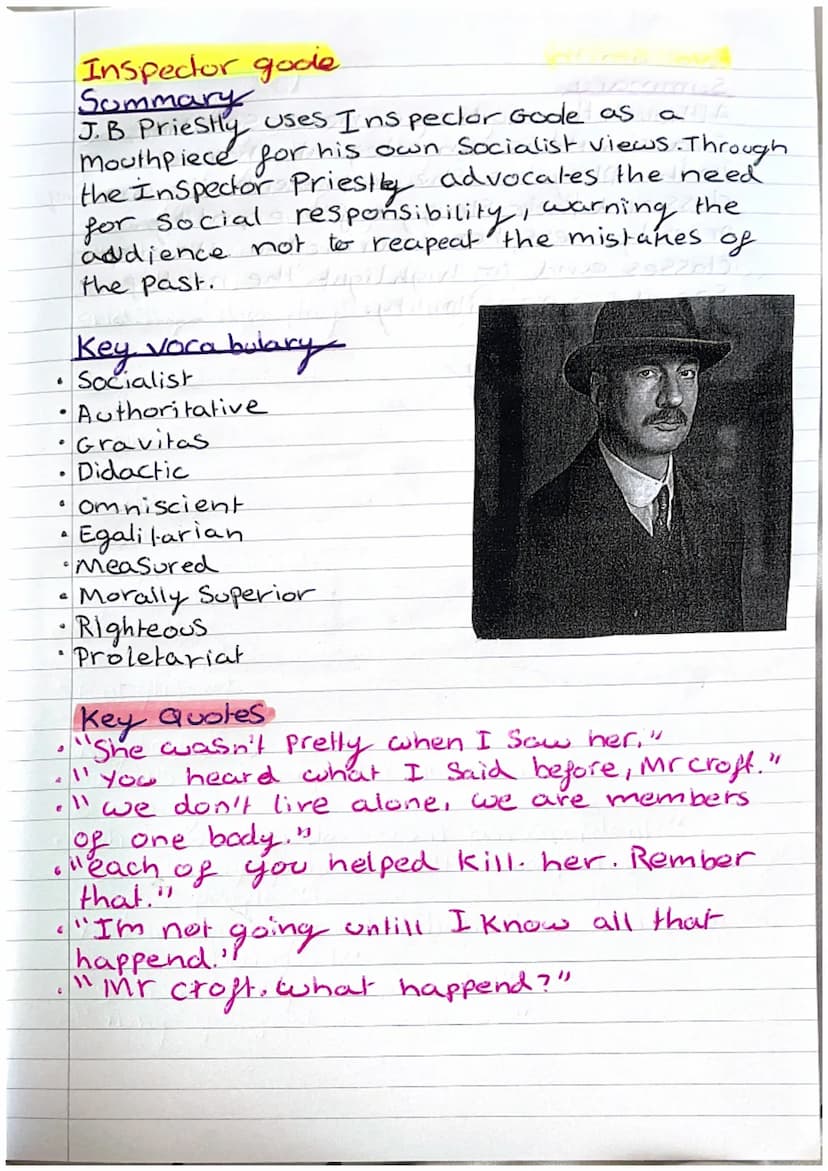 Inspector goole
Summary
J.B Priestly uses Inspector Goole as a
Mouthpiece for his own Socialist views. Through
the Inspector Priestly advocates the need
for social responsibility, warning the
audience not to reapeat the mistakes of
the past.
Key vocabulary
• Socialist
• Authoritative
• Gravitas
• Didactic
• omniscient
• Egalitarian
• Measured
• Morally Superior
• Righteous
• Proletariat
Key Quotes
• "She wasn't Pretty when I Saw her."
• "you heard what I Said before, Mr croft."
• "we don't live alone, we are members
of one body."
• "each of you helped kill. her. Rember
that."
• "I'm not going untill I know all that
happend."
• "Mr croft, what happend?"